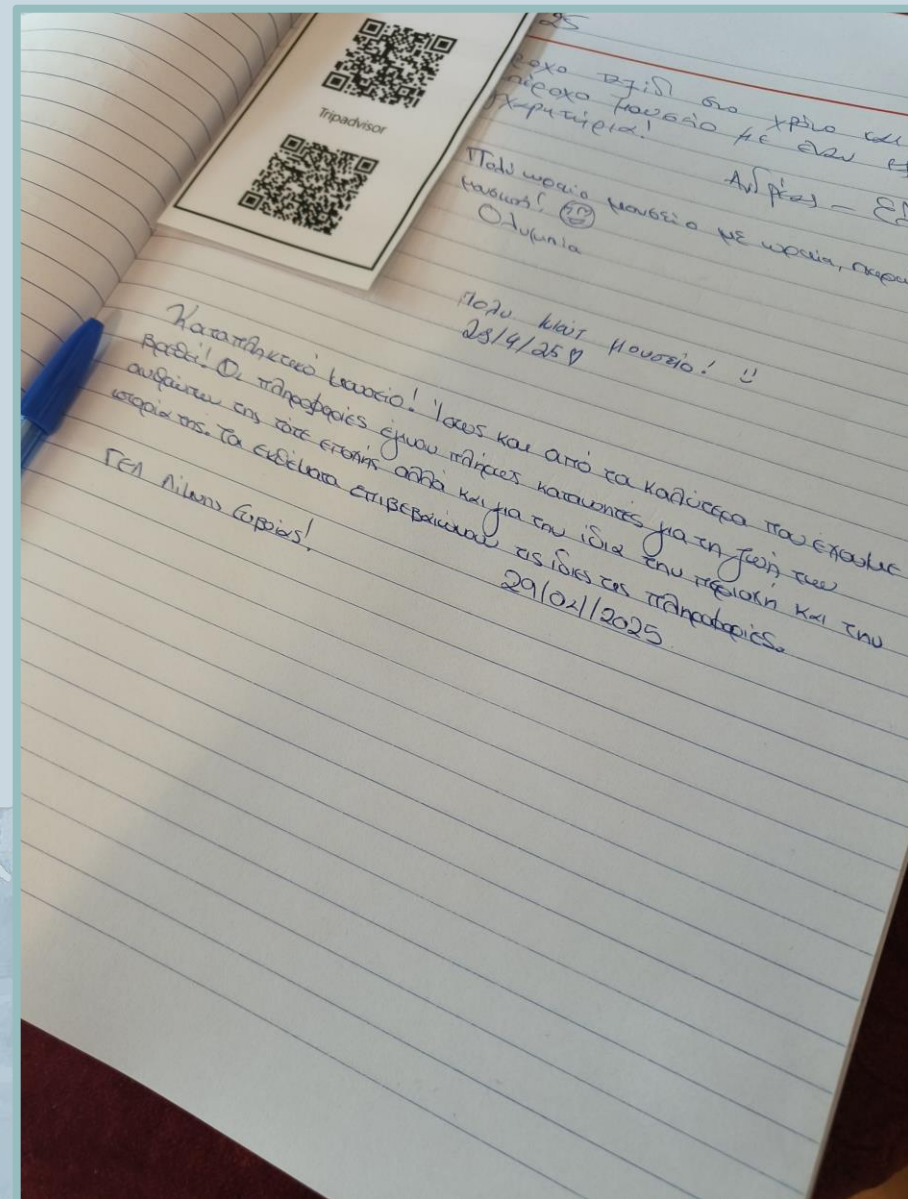 25
Tripadvisor
ταξίδι στο χρόνο
μουσείο με έναν
Ανδρέας -
Πολύ ωραίο μουσείο με ωραία,
μουσική!
Ολυμπία
Πολύ κιουτ μουσείο!
28/4/25
Καταπληκτικό μουσείο! Ίσως και από τα καλύτερα που έχουμε
βρεθεί! Οι πληροφορίες έγιναν πλήρως κατανοητές για τη ζωή των
ανθρώπων της τότε εποχής αλλά και για την ίδια την περιοχή και την
ιστορία της. Τα εκθέματα επιβεβαίωναν τις ίδιες τις πληροφορίες.
29/04/2025
ΓΕΛ Λίμνης Ευβοίας!